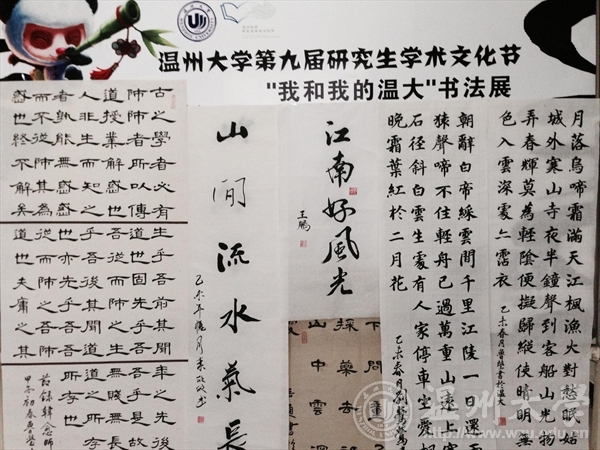 温州大学第九届研究生学术文化节
"我和我的温大"书法展
月落烏啼霜滿天江楓漁火對愁眠姑
城外寒山寺夜半鐘聲到客船山光物
弄春輝莫為輕陰便擬歸縱使晴明無
色入雲深處亦霑衣
朝辭白帝綵雲間千里江陵一日還
猿聲啼不住輕舟已過萬重山遠上寒
石徑斜白雲生處有人家停車坐愛楓
晚霜葉紅於二月花
江南好風光
王鵬
山澗流水氣長
下問童
採藥去
山中雲深
古之學者必有
師師者所以傳
道授業解惑也
人非生而知之
者孰能無惑惑
而不從師其為
惑也終不解矣
生乎吾前其聞
道也固先乎吾
吾從而師之生
乎吾後其聞道
也亦先乎吾吾
從而師之吾師
道也夫庸知其
年之先後
吾乎是故
無貴無賤
之所存
所存也
温州大学